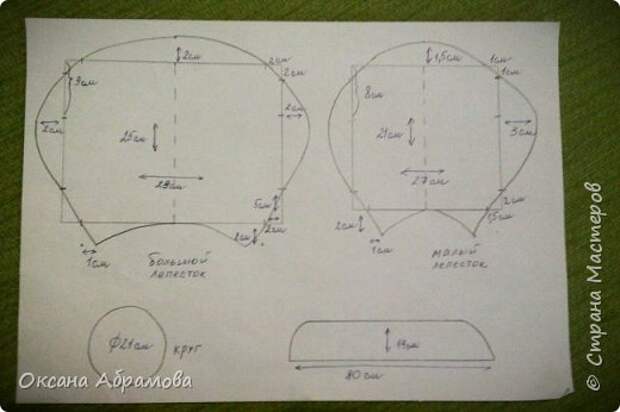 2см
2см
2см
9см
2см
2см
25см
29см
5см
2см
2см
1см
большой
лепесток
1,5см
1см
1см
8см
21см
3см
27см
2см
1,5см
2см
1см
малый
лепесток
Ф21см
круг
14см
80см
Оксана Абрамова
© Страна Мастеров